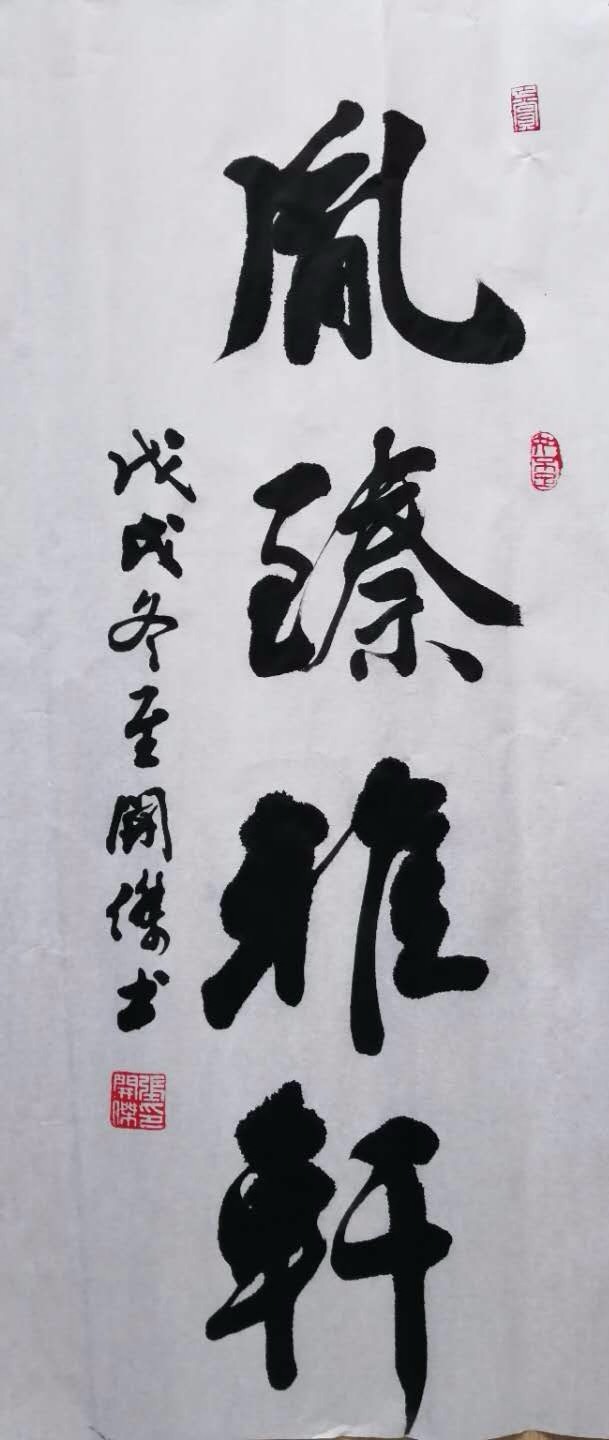 胤臻雅軒
戊戌冬至開傑书
張開傑印